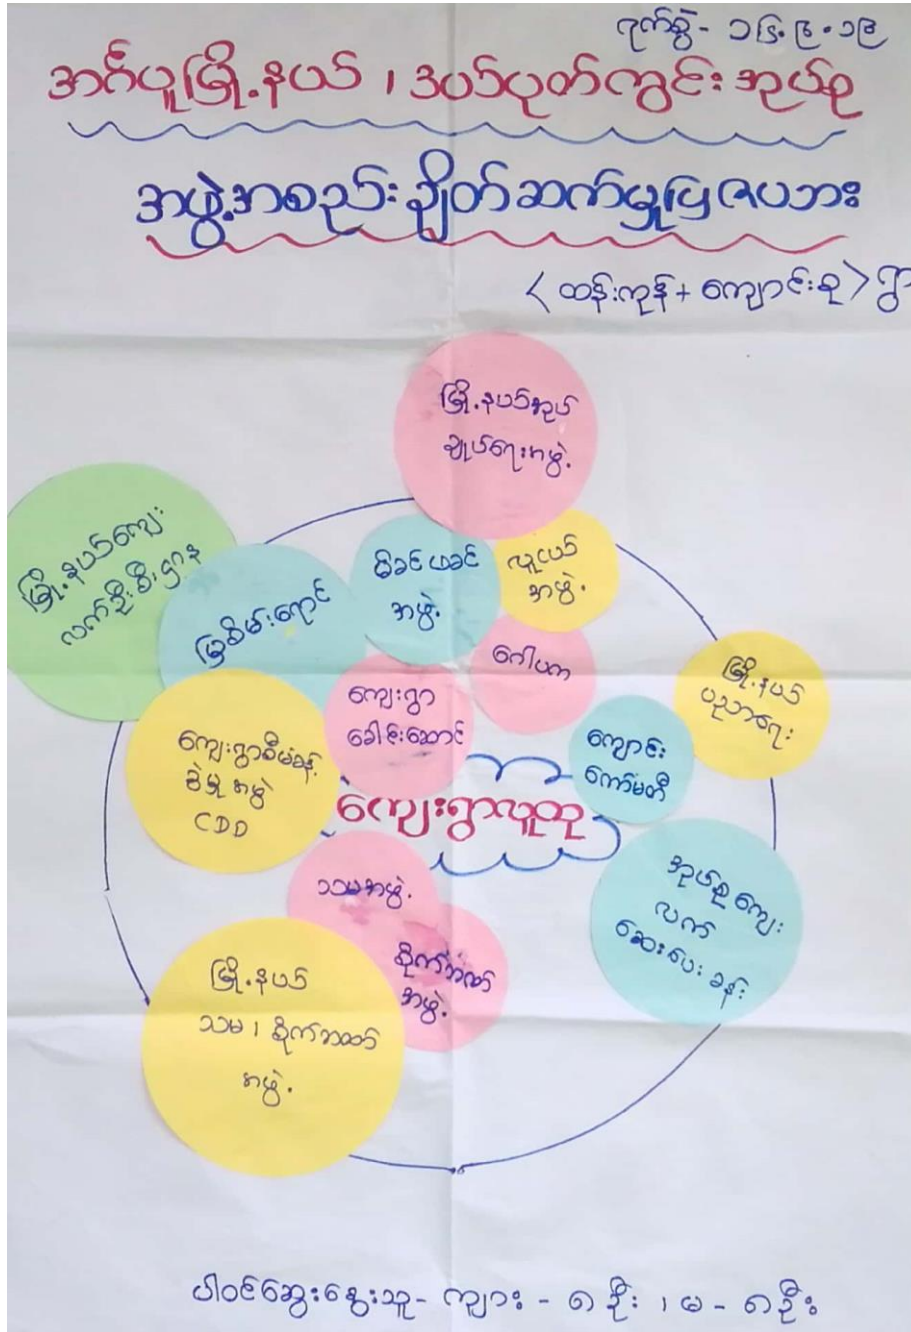 ရက်စွဲ- ၁၆.၉.၁၉
အင်္ဂပူမြို့နယ် ၊ ဒပ်ပုတ်ကွင်း အုပ်စု
အဖွဲ့အစည်း ချိတ်ဆက်မှုပြဇယား
<ထန်းကုန်း+ ကျောင်းစု> ရွာ
မြို့နယ်အုပ်
ချုပ်ရေးအဖွဲ့
မြို့နယ်ကျေး
လက်ဦးစီးဌာန
မြစိမ်းရောင်
မိခင် ဖခင်
အဖွဲ့
လူငယ်
အဖွဲ့
ဂေါပက
မြို့နယ်
ပညာရေး
ကျေးရွာ
ခေါင်းဆောင်
ကျောင်း
ကော်မတီ
ကျေးရွာစီမံခန့်
ခွဲမှု အဖွဲ့
CDD
ကျေးရွာလူထု
အုပ်စု ကျေး
လက်
ဆေးပေး ခန်း
သမအဖွဲ့
စိုက်ဘဏ်
အဖွဲ့
မြို့နယ်
သမ ၊ စိုက်ဘဏ်
အဖွဲ့
ပါဝင်ဆွေးနွေးသူ- ကျား - ၈ ဦး ၊ မ - ၈ဦး